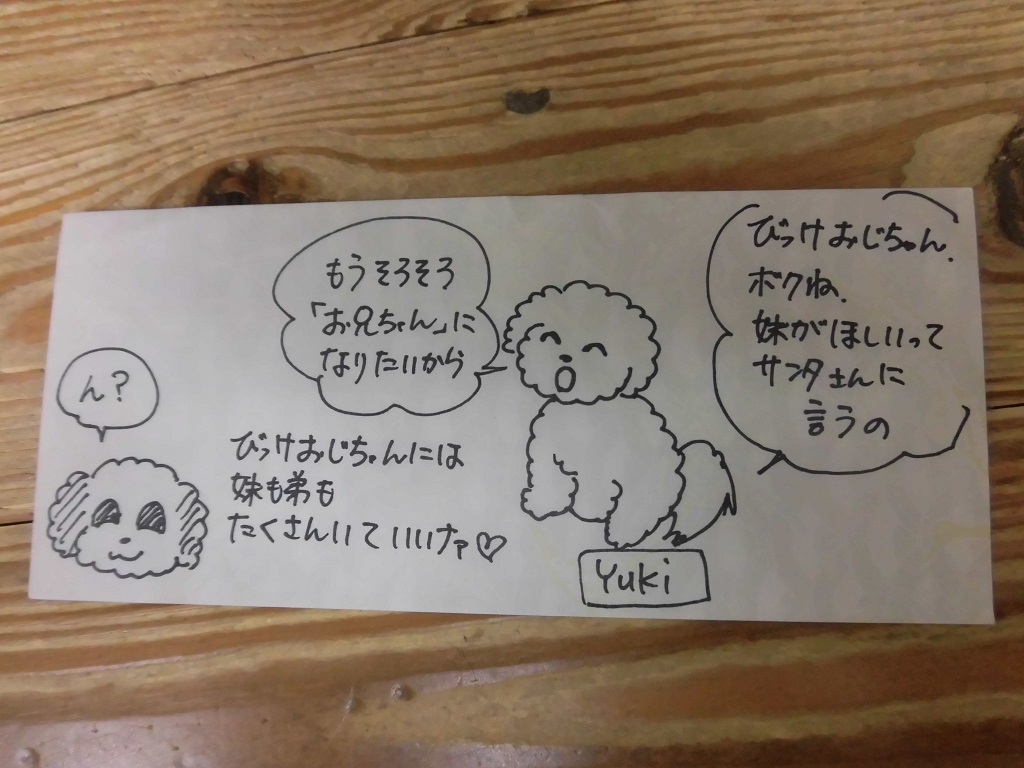 びっけおじちゃん、
ボクね、
妹がほしいって
サンタさんに
言うの
もうそろそろ
「お兄ちゃん」に
なりたいから
びっけおじちゃんには
妹も弟も
たくさんいていいナァ♡
ん?
Yuki